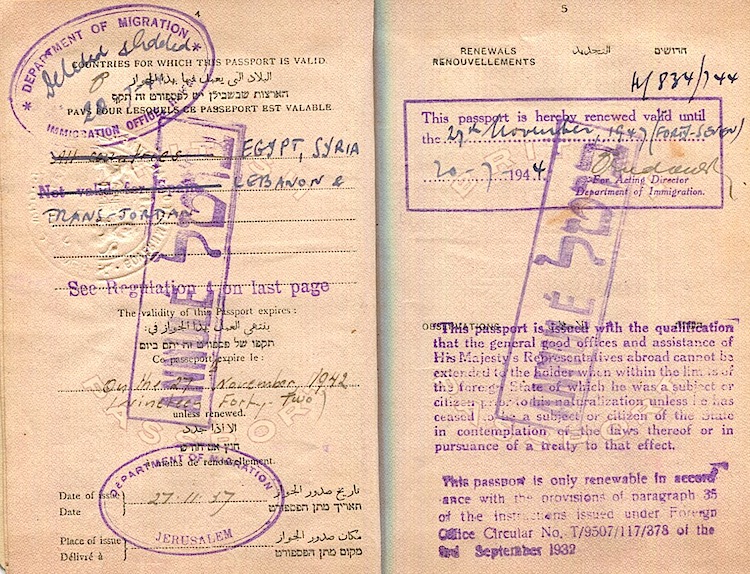 4
DEPARTMENT OF MIGRATION
IMMIGRATION OFFICER
20
COUNTRIES FOR WHICH THIS PASSPORT IS VALID.
البلاد التي يعمل فيها بهذا الجواز
הארצות שבשבילן יש לפספורט זה תקף
PAYS POUR LESQUELS CE PASSEPORT EST VALABLE.
All countries EGYPT, SYRIA
Not valid for Spain LEBANON &
TRANS-JORDAN
See Regulation 4 on last page
The validity of this Passport expires:
ينتهي العمل بهذا الجواز في:
תקפו של פספורט זה יתם ביום
Ce passeport expire le:
On the 27 November, 1942
(nineteen Forty-Two)
unless renewed.
الا اذا جدد
חוץ אם חודש
à moins de renouvellement.
DEPARTMENT OF MIGRATION
JERUSALEM
Date of issue 27.11.37 تاريخ صدور الجواز
Date האריך מתן הפספורט
Place of issue مكان صدور الجواز
Délivré à מקום מתן הפספורט
ANNULÉ
מבוטל
5
RENEWALS التجديد חדושים
RENOUVELLEMENTS
This passport is hereby renewed valid until
the 27th November, 1947 (FORTY-SEVEN)
20-7-1944
For Acting Director
Department of Immigration.
OBSERVATIONS
This passport is issued with the qualification
that the general good offices and assistance of
His Majesty's Representatives abroad cannot be
extended to the holder when within the limits of
the foreign State of which he was a subject or
citizen prior to his naturalization unless he has
ceased to be a subject or citizen of the State
in contemplation of the laws thereof or in
pursuance of a treaty to that effect.
This passport is only renewable in accord
ance with the provisions of paragraph 35
of the instructions issued under Foreign
Office Circular No. T/9507/117/378 of the
2nd September 1932
ANNULÉ
מבוטל